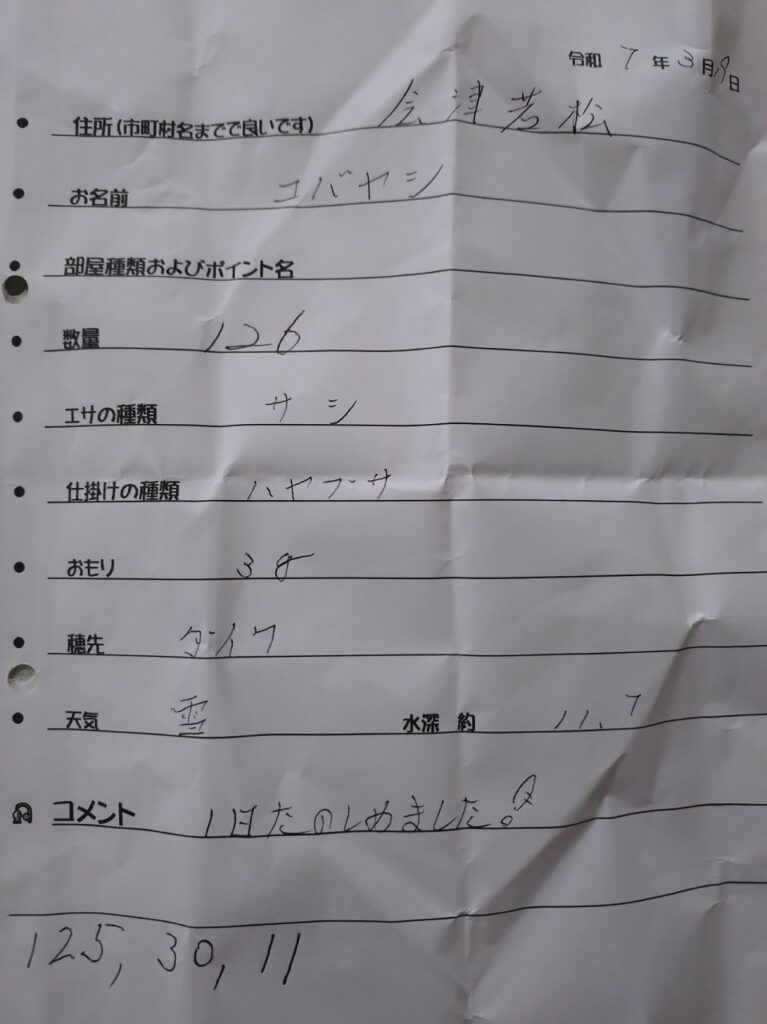 令和 7 年 3 月 19 日
住所(市町村名までで良いです) 会津若松
お名前 コバヤシ
部屋種類およびポイント名
数量 126
エサの種類 サシ
仕掛けの種類 ハヤブサ
おもり 3g
穂先 ダイワ
天気 雪 水深 約 11.7
コメント 1日たのしめました!
125, 30, 11